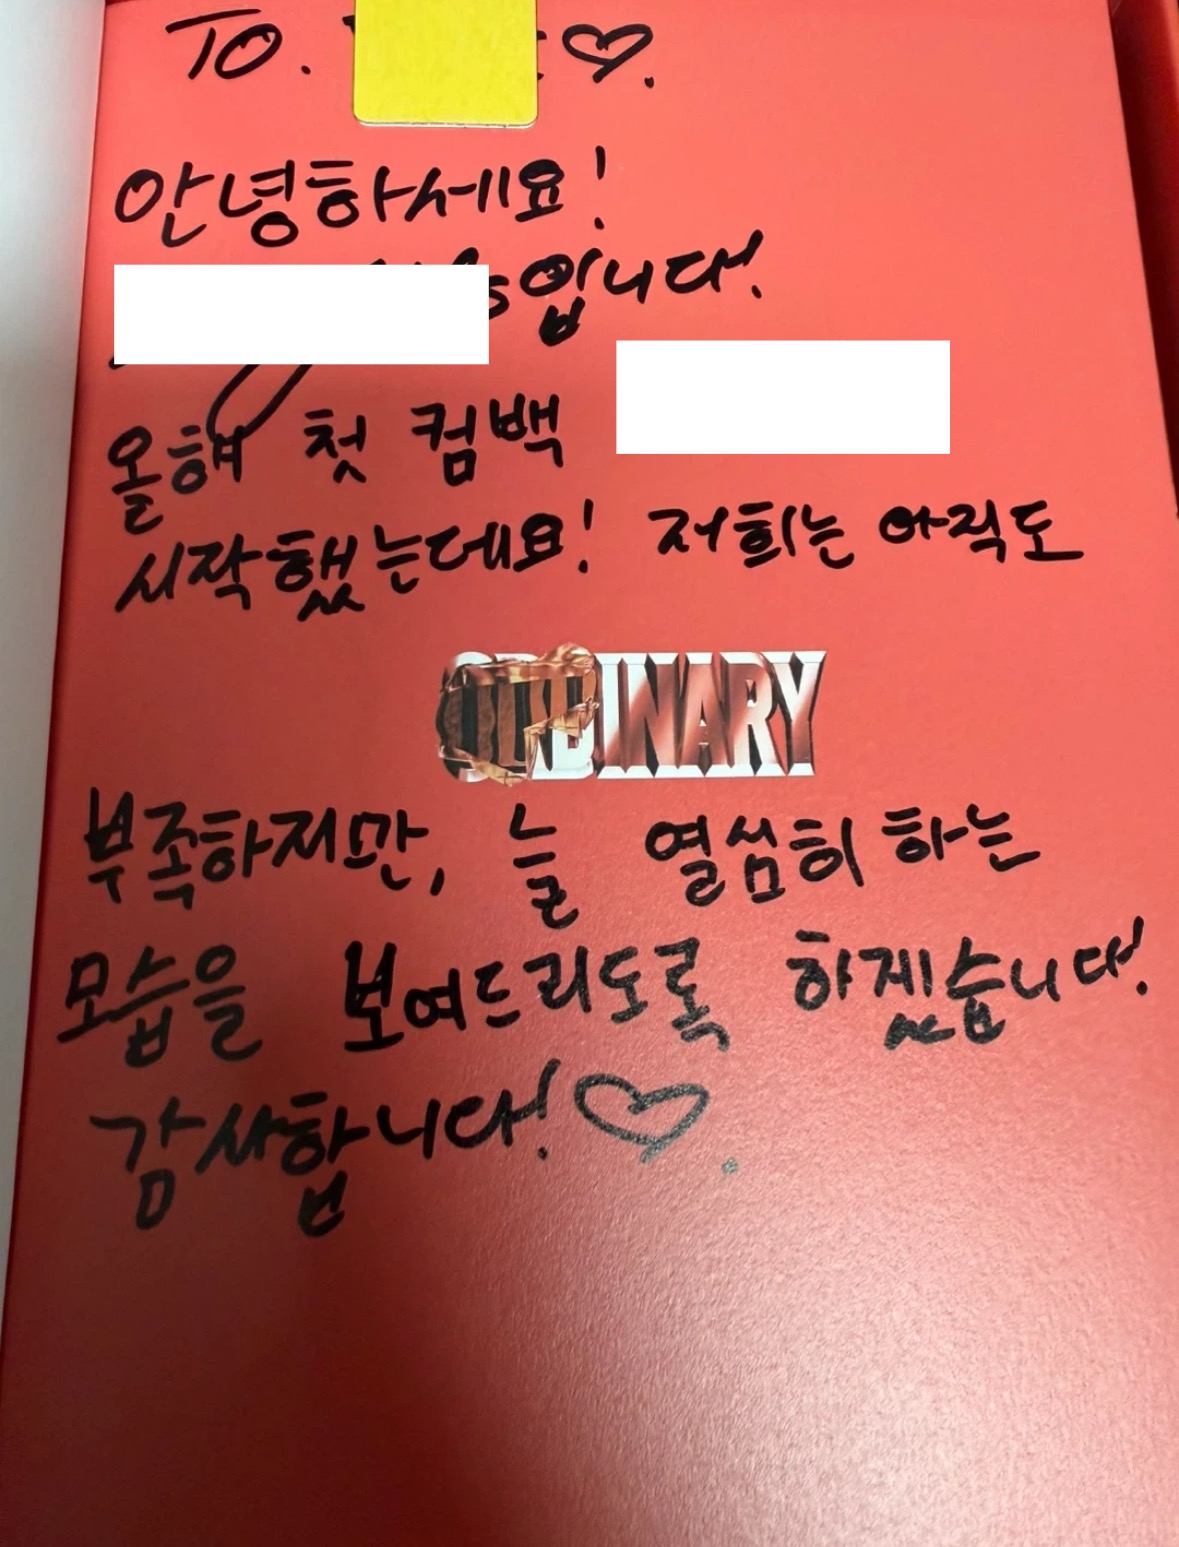 TO. ♡.
안녕하세요!
입니다!
올해 첫 컴백
시작했는데요! 저희는 아직도
ODDINARY
부족하지만, 늘 열씸히 하는
모습을 보여드리도록 하겠습니다!
감사합니다!♡.